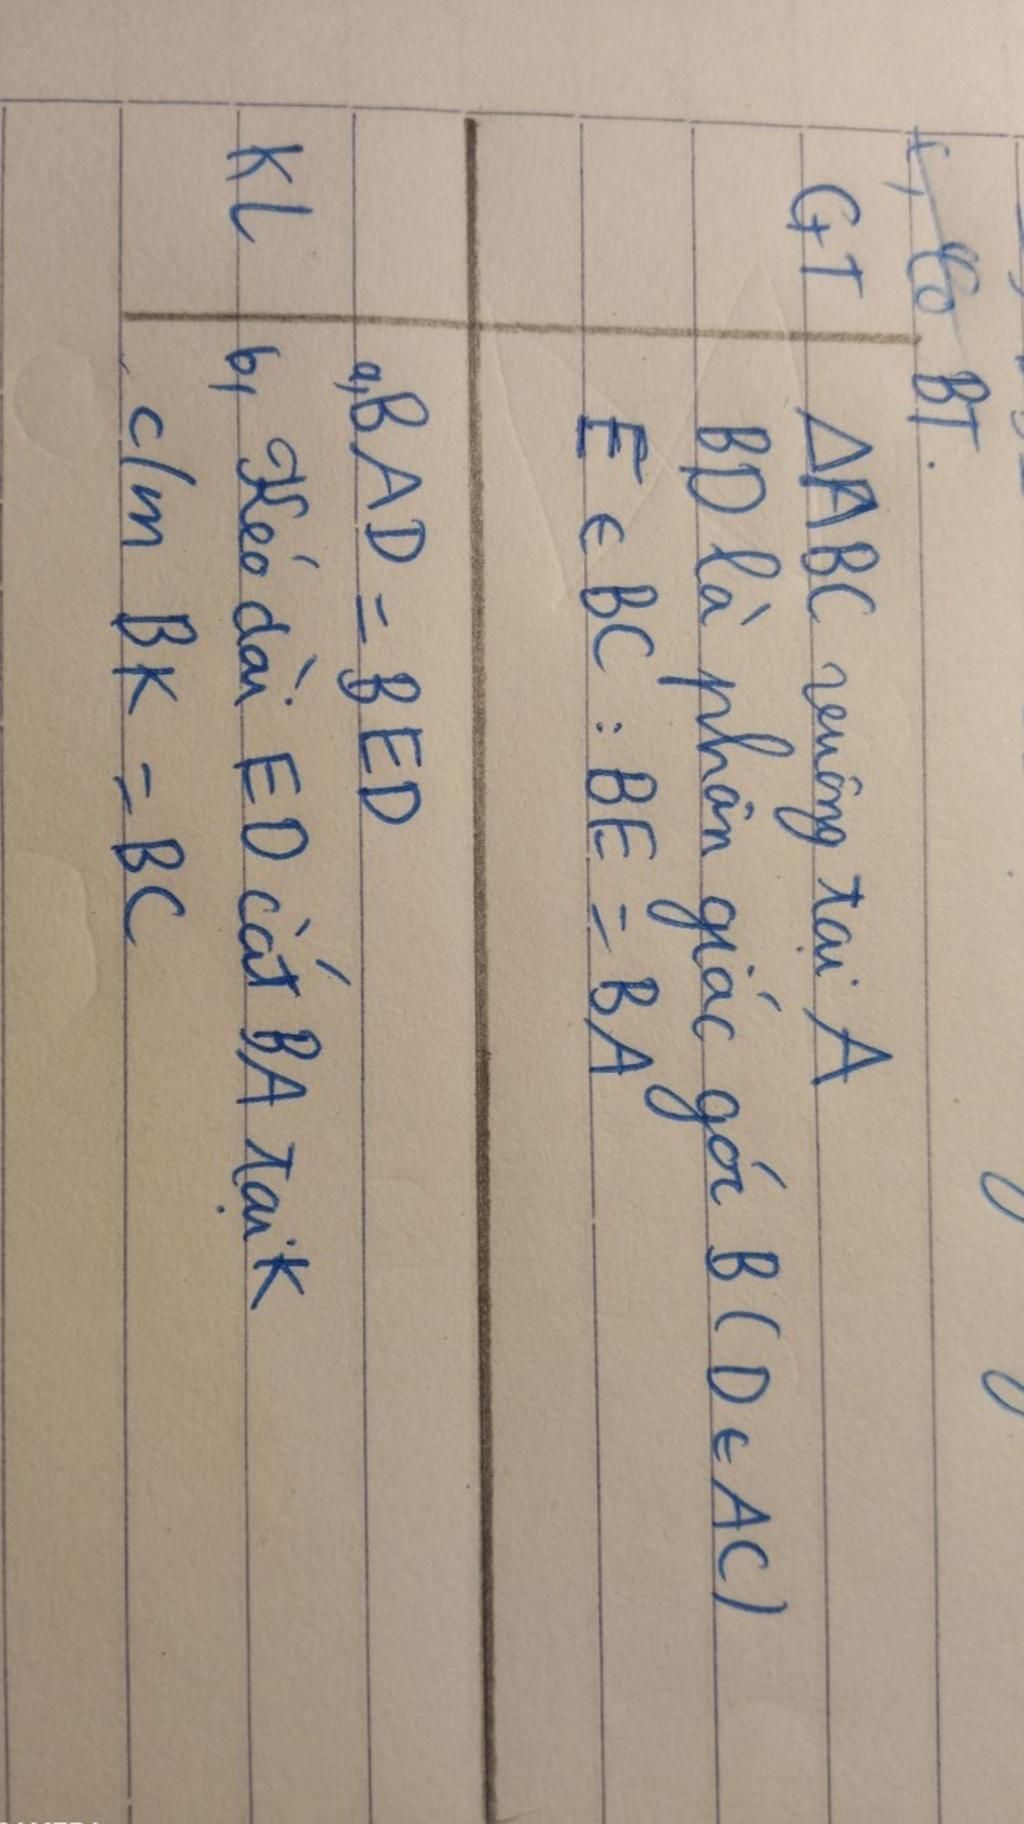 BT.
GT ΔABC vuông tại A
BD là phân giác góc B (D ∈ AC)
E ∈ BC : BE = BA
a, BAD = BED
KL b, Kéo dài ED cắt BA tại K
c/m BK = BC